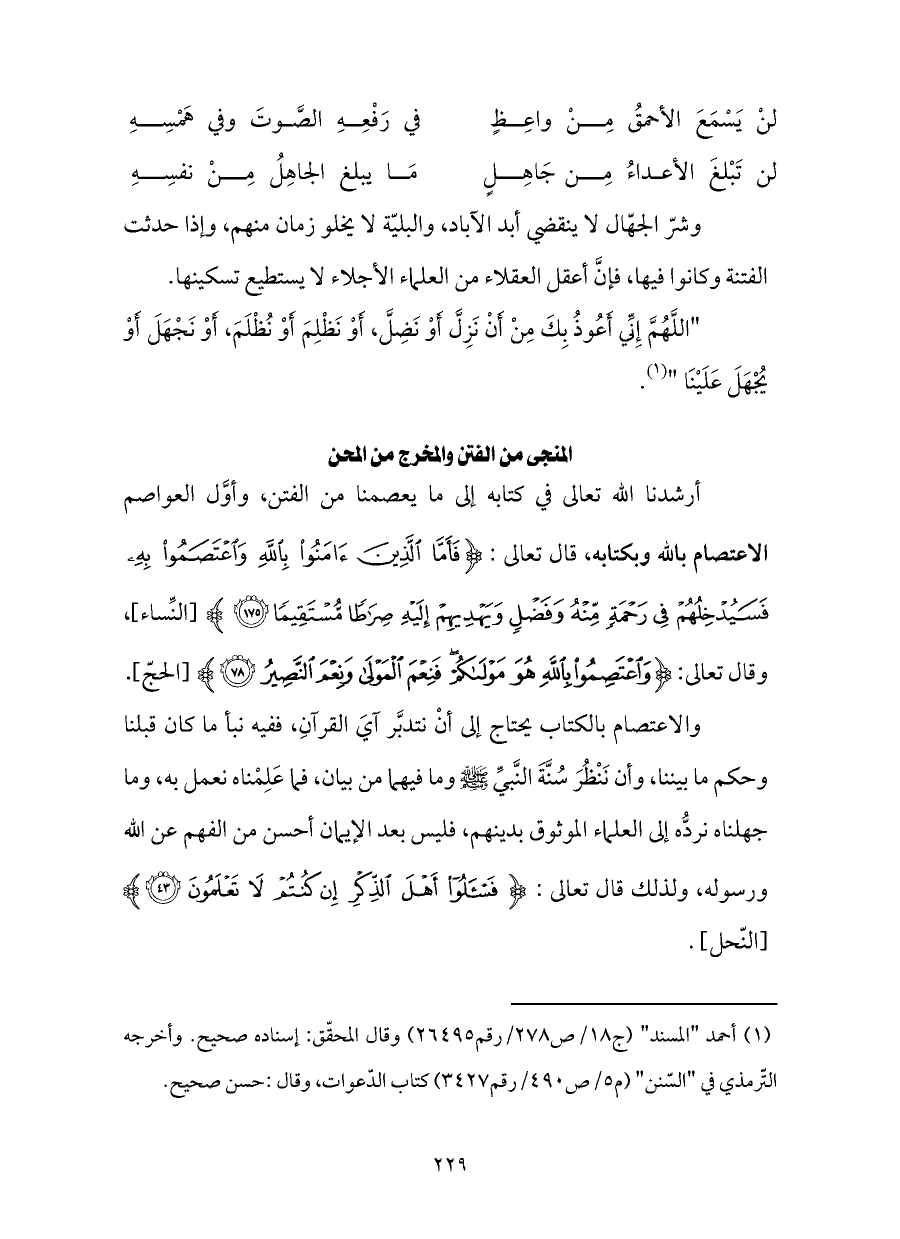 لنْ يَسْمَعَ الأحمقُ مِنْ واعِظٍ في رَفْعِهِ الصَّوتَ وفي هَمْسِهِ
لن تَبْلغَ الأعداءُ مِن جَاهِلٍ مَا يبلغ الجاهِلُ مِنْ نفسِهِ
وشرّ الجهّال لا ينقضي أبد الآباد، والبليّة لا يخلو زمان منهم، وإذا حدثت
الفتنة وكانوا فيها، فإنَّ أعقل العقلاء من العلماء الأجلاء لا يستطيع تسكينها.
"اللَّهُمَّ إِنِّي أَعُوذُ بِكَ مِنْ أَنْ نَزِلَّ أَوْ نَضِلَّ، أَوْ نَظْلِمَ أَوْ نُظْلَمَ، أَوْ نَجْهَلَ أَوْ
يُجْهَلَ عَلَيْنَا "(١).
المنجى من الفتن والمخرج من المحن
أرشدنا الله تعالى في كتابه إلى ما يعصمنا من الفتن، وأوَّل العواصم
الاعتصام بالله وبكتابه، قال تعالى : ﴿ فَأَمَّا ٱلَّذِينَ ءَامَنُوا۟ بِٱللَّهِ وَٱعْتَصَمُوا۟ بِهِۦ
فَسَيُدْخِلُهُمْ فِى رَحْمَةٍ مِّنْهُ وَفَضْلٍ وَيَهْدِيهِمْ إِلَيْهِ صِرَٰطًا مُّسْتَقِيمًا ١٧٥ ﴾ [النِّساء]،
وقال تعالى: ﴿ وَٱعْتَصِمُوا۟ بِٱللَّهِ هُوَ مَوْلَىٰكُمْ ۖ فَنِعْمَ ٱلْمَوْلَىٰ وَنِعْمَ ٱلنَّصِيرُ ٧٨ ﴾ [الحجّ].
والاعتصام بالكتاب يحتاج إلى أنْ نتدبَّر آيَ القرآنِ، ففيه نبأ ما كان قبلنا
وحكم ما بيننا، وأن نَنْظُرَ سُنَّةَ النَّبيِّ ﷺ وما فيهما من بيان، فما عَلِمْناه نعمل به، وما
جهلناه نردُّه إلى العلماء الموثوق بدينهم، فليس بعد الإيمان أحسن من الفهم عن الله
ورسوله، ولذلك قال تعالى : ﴿ فَسْـَٔلُوٓا۟ أَهْلَ ٱلذِّكْرِ إِن كُنتُمْ لَا تَعْلَمُونَ ٤٣ ﴾
[النّحل] .
(١) أحمد "المسند" (ج١٨/ ص٢٧٨/ رقم٢٦٤٩٥) وقال المحقّق: إسناده صحيح. وأخرجه
التّرمذي في "السّنن" (م٥/ ص٤٩٠/ رقم٣٤٢٧) كتاب الدّعوات، وقال :حسن صحيح.
٢٢٩